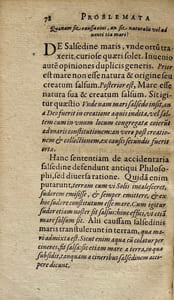 78 PROBLEMATA
Quanam sic causa sint, an sit naturale vel ad
uentitia maris?
DE Salsedine maris, vnde ortũ tra-
xerit, curiose quæri solet. Inuenio
autē opiniones duplicis generis. Prior
est mare non esse natura & origine seu
creatum salsum. Posterior est, Mare esse
natura sua & creatum salsum. Sit igi-
tur quæstio Vnde nam maris salsedo insit, an
a Deo fuerit in creatione aquis indita, vel sal-
tem cum in vnum locum congregaretis terrâ
condita constitutionem an verò post creatio-
nem & collectionem ex causis secundis fuerit
orta.
Hanc sententiam de accidentaria
salsedine defendunt antiqui Philoso-
phi, sed diuersa ratione. Quidã enim
putarunt, terram cum vi Solis incalesceret,
sudorem emisisse, & semper emittere, & ex
hoc sudore constitutum esse mare. Cum igitur
sudor etiam noster sit salsus, hinc effici vt etiã
mare sit salsum. Alii causam salsedinis
maris transtulerunt in terram, qua ma-
ri admixta est. Sicut enim aqua si colatur per
cineres, fit salsa: sic etiam mare à terra, in qua
subsidit, tanquam à cineribus salsedinem acci-
pere dicunt.